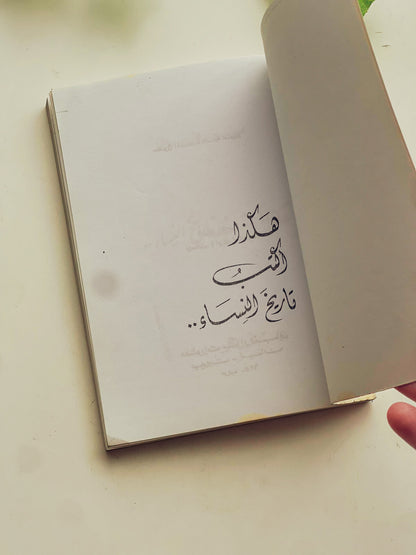 هَكَذا
اكْتُبُ
تاريخَ النِسَاء..